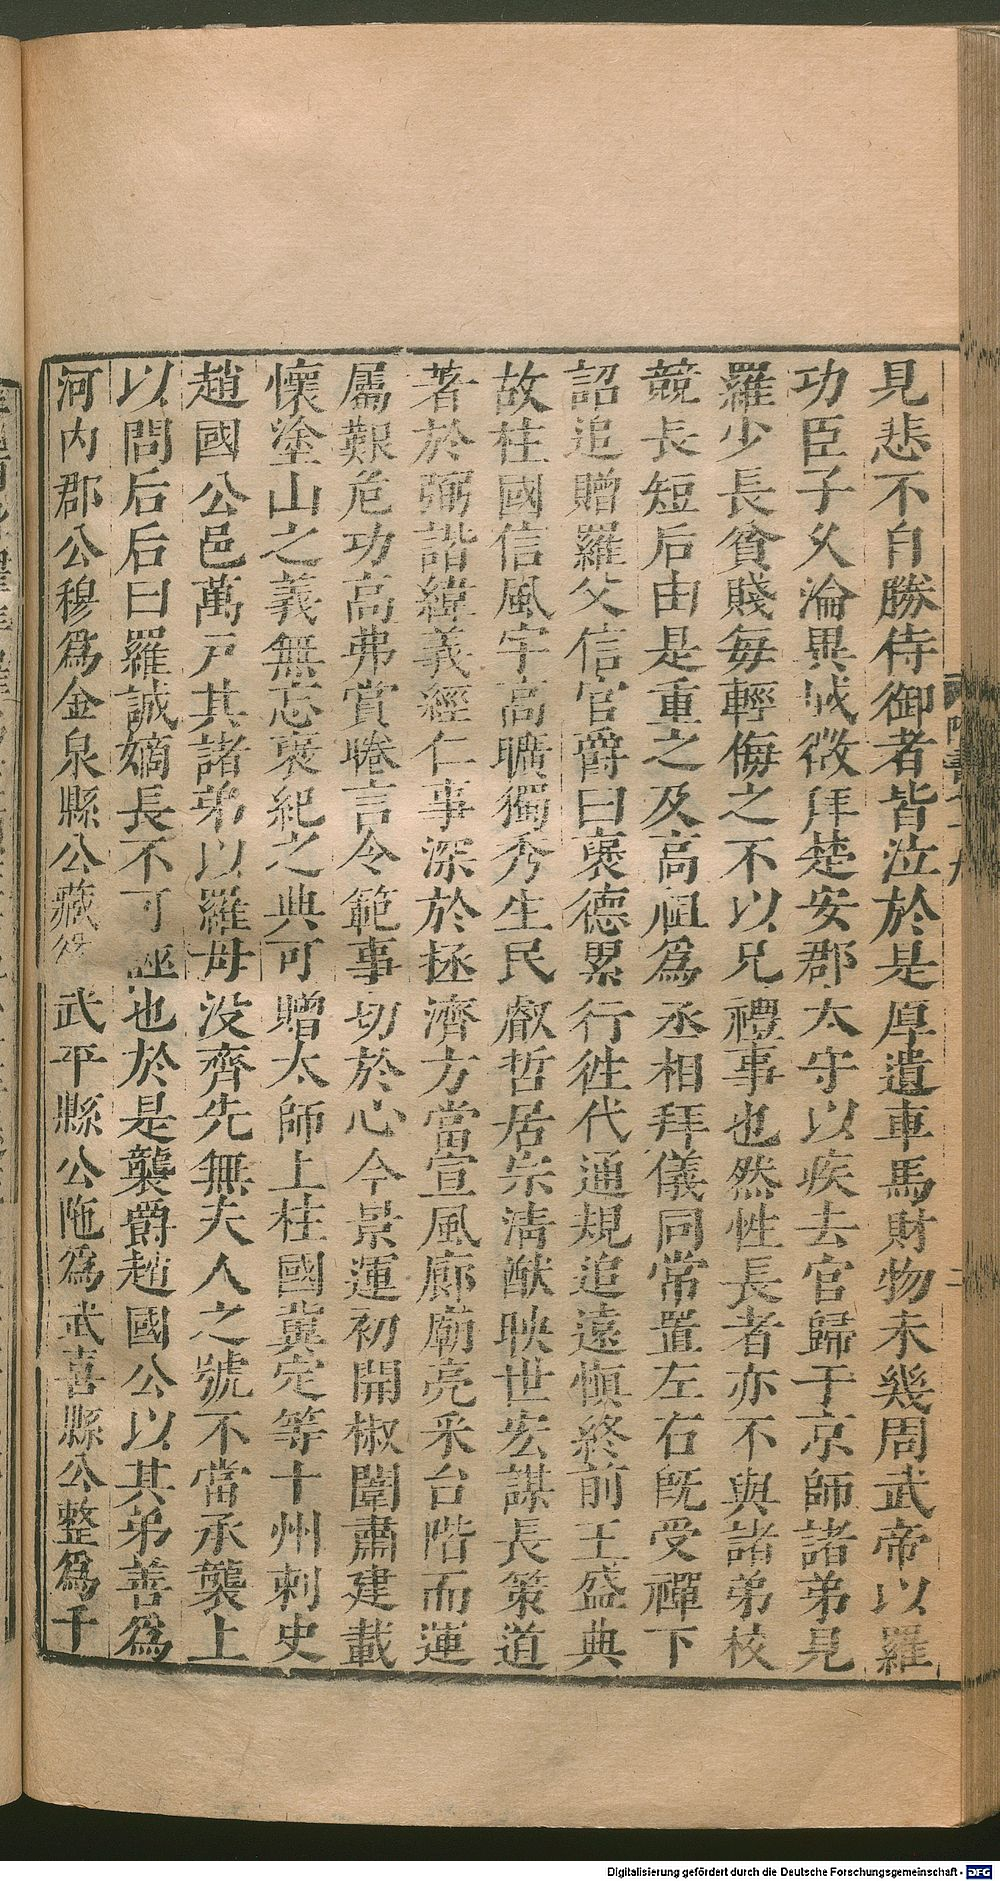 見悲不自勝侍御者皆泣於是厚遺車馬財物未幾周武帝以羅
功臣子久淪異域徴拜楚安郡太守以疾去官歸于京師諸弟見
羅少長貧賤每輕侮之不以兄禮事也然性長者亦不與諸弟校
競長短后由是重之及高祖爲丞相拜儀同常置左右既受禪下
詔追贈羅父信官爵曰褒德累行徃代通規追遠愼終前王盛典
故柱國信風宇高曠獨秀生民叡哲居宗淸猷映世宏謀長策道
著於弼諧緯義經仁事深於拯濟方當宣風廊廟亮采台階而運
屬艱危功高弗賞睠言令範事切於心今景運初開椒闈肅建載
懷塗山之義無忘褒紀之典可贈太師上柱國冀定等十州刺史
趙國公邑萬戸其諸弟以羅母没齊先無夫人之號不當承襲上
以問后后曰羅誠嫡長不可誣也於是襲爵趙國公以其弟善爲
河内郡公穆爲金泉縣公藏 武平縣公陁爲武喜縣公整爲千
二
Digitalisierung gefördert durch die Deutsche Forschungsgemeinschaft - DFG